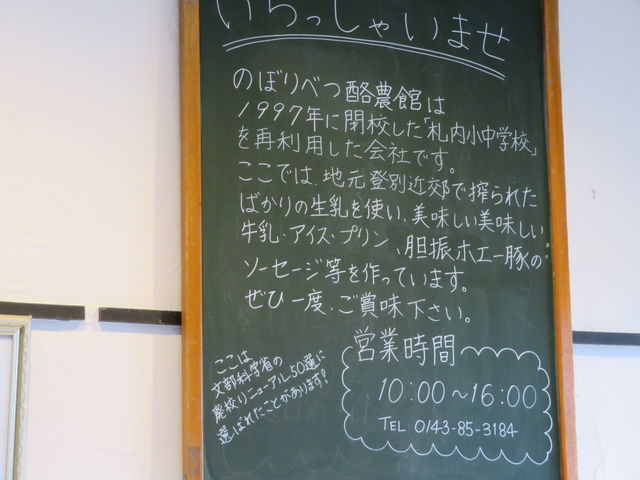 いらっしゃいませ
のぼりべつ酪農館は
1997年に閉校した「札内小中学校」
を再利用した会社です。
ここでは、地元登別近郊で搾られた
ばかりの生乳を使い、美味しい美味しい
牛乳・アイス・プリン、胆振ホエー豚の
ソーセージ等を作っています。
ぜひ一度、ご賞味下さい。
ここは
文部科学省の
廃校リニューアル50選に
選ばれたことがあります!
営業時間
10:00~16:00
TEL 0143-85-3184